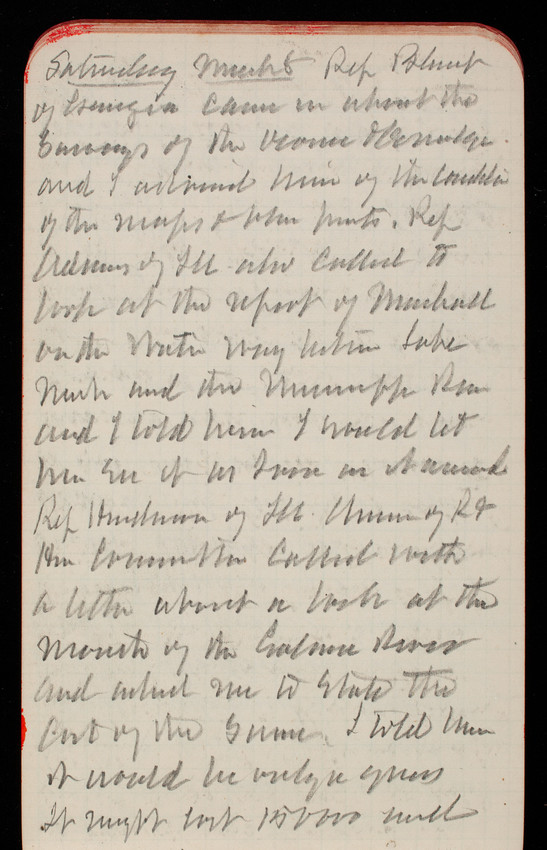 Saturday March 8 Rep Blount
of Georgia came in about the
Surveys of the Oconee & Ocmulgee
and I advised him of the condition
of the maps & blue prints. Rep
Adams of Ill also called to
look at the report of Marshall
on the Water way between Lake
Mich and the Mississippi River
and I told him I would let
him see it as soon as it arrived
Rep Henderson of Ill. Chmn of R &
Har Committee called with
a letter about a lock at the
Mouth of the River
and asked me to State the
Cost of the Same. I told him
it would be only a guess
It might cost 150000 and